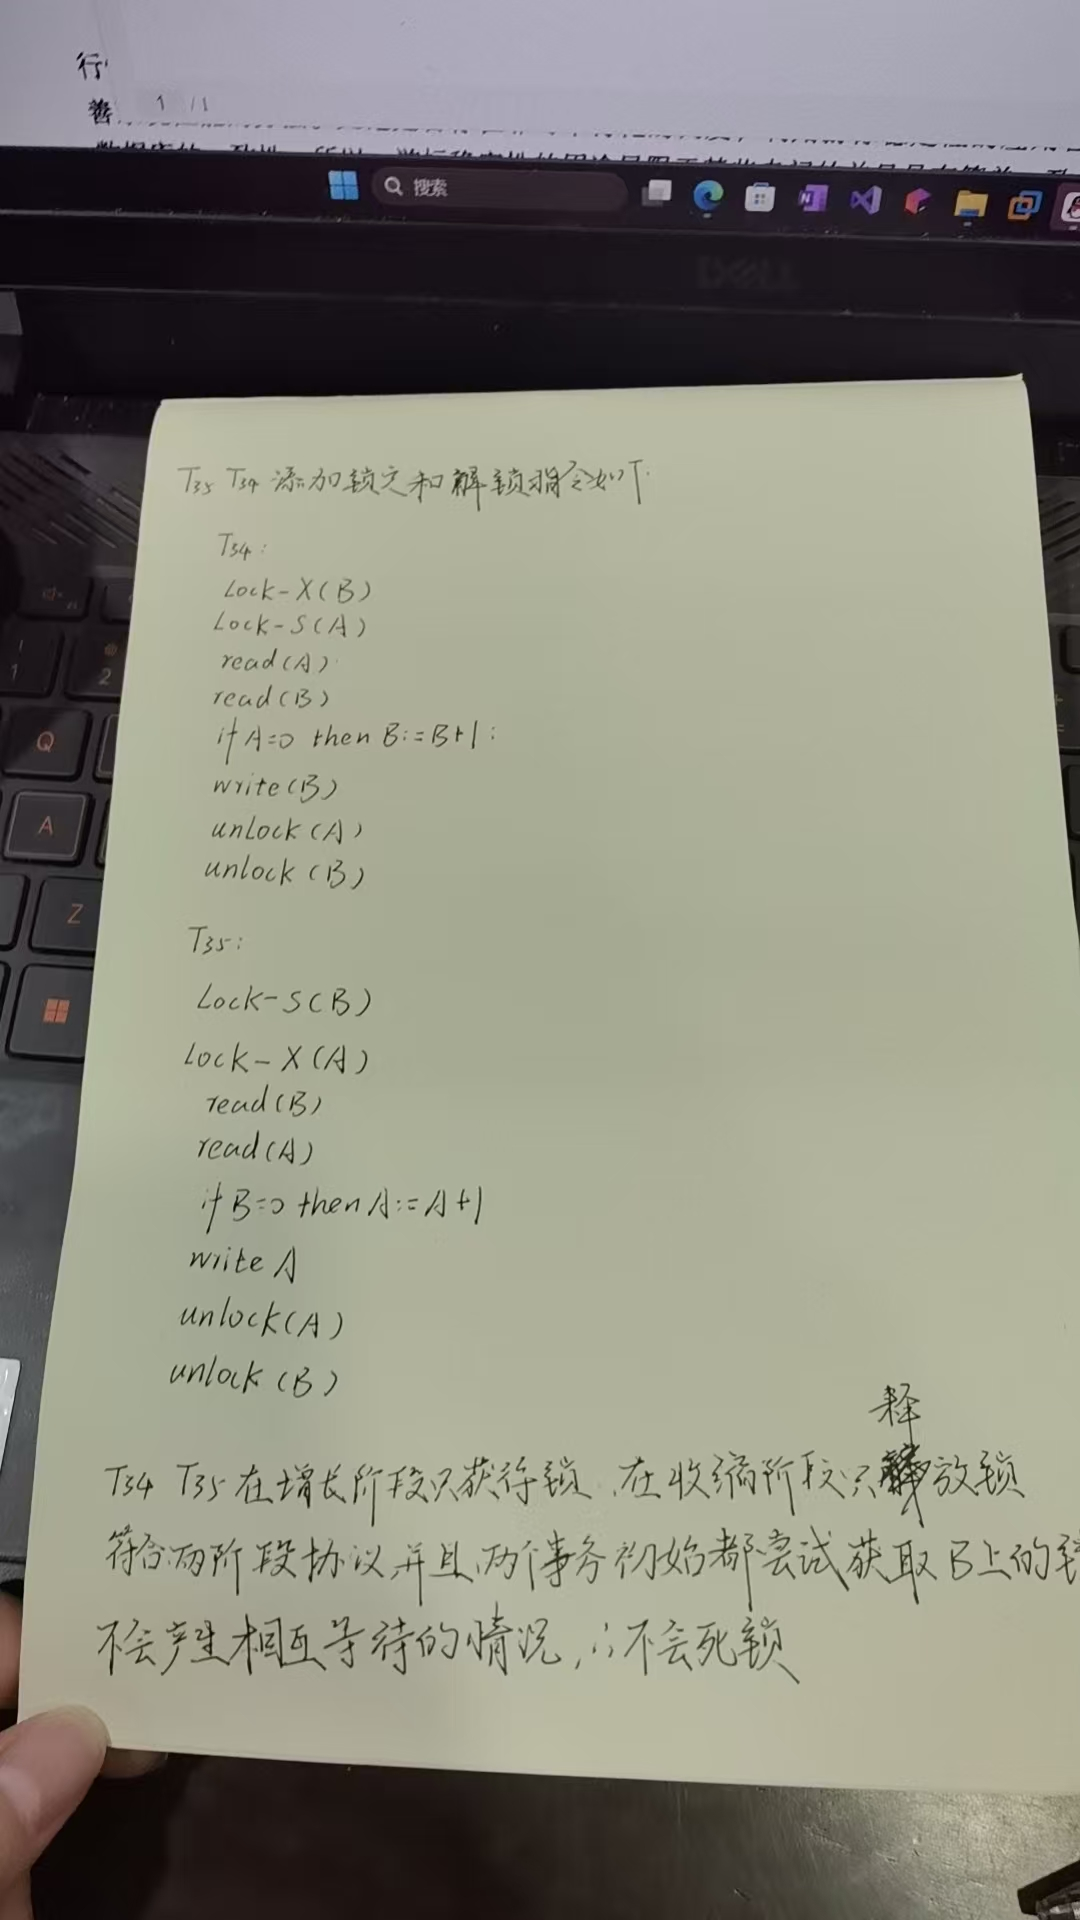 行
善
1 / 1
搜索
DELL
T35 T34 添加锁定和解锁指令如下.
T34:
Lock-X(B)
Lock-S(A)
read(A)
read(B)
if A=0 then B:=B+1;
write(B)
unlock(A)
unlock(B)
T35:
Lock-S(B)
Lock-X(A)
read(B)
read(A)
if B=0 then A:=A+1
write A
unlock(A)
unlock(B)
T34 T35 在增长阶段只获得锁,在收缩阶段只释放锁
符合两阶段协议并且两个事务初始都尝试获取B上的锁
不会产生相互等待的情况,∴不会死锁
1
2
Q
A
Z